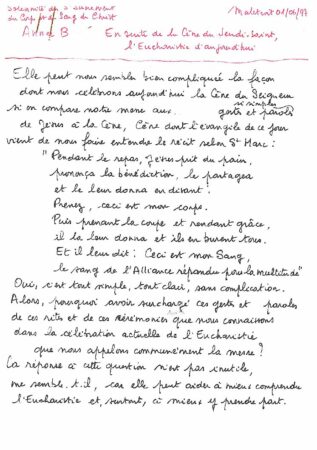 Solennité du S. Sacrement
du Corps et du Sang du Christ
Malétroit 01/06/97
Année B
En suite de la Cène du Jeudi-Saint,
l'Eucharistie d'aujourd'hui
Elle peut nous sembler bien compliquée la façon
dont nous célébrons aujourd'hui la Cène du Seigneur
si on compare notre messe aux si simples gestes et paroles
de Jésus à la Cène, Cène dont l'évangile de ce jour
vient de nous faire entendre le récit selon St Marc :
"Pendant le repas, Jésus prit du pain,
prononça la bénédiction, le partagea
et le leur donna en disant :
Prenez, ceci est mon corps.
Puis prenant la coupe et rendant grâce,
il la leur donna et ils en burent tous.
Et il leur dit : Ceci est mon Sang,
le sang de l'Alliance répandu pour la multitude"
Oui, c'est tout simple, tout clair, sans complication.
Alors, pourquoi avoir surchargé ces gestes et paroles
de ces rites et de ces cérémonies que nous connaissons
dans la célébration actuelle de l'Eucharistie
que nous appelons communément la messe ?
La réponse à cette question n'est pas inutile,
me semble-t-il, car elle peut aider à mieux comprendre
l'Eucharistie et, surtout, à mieux y prendre part.